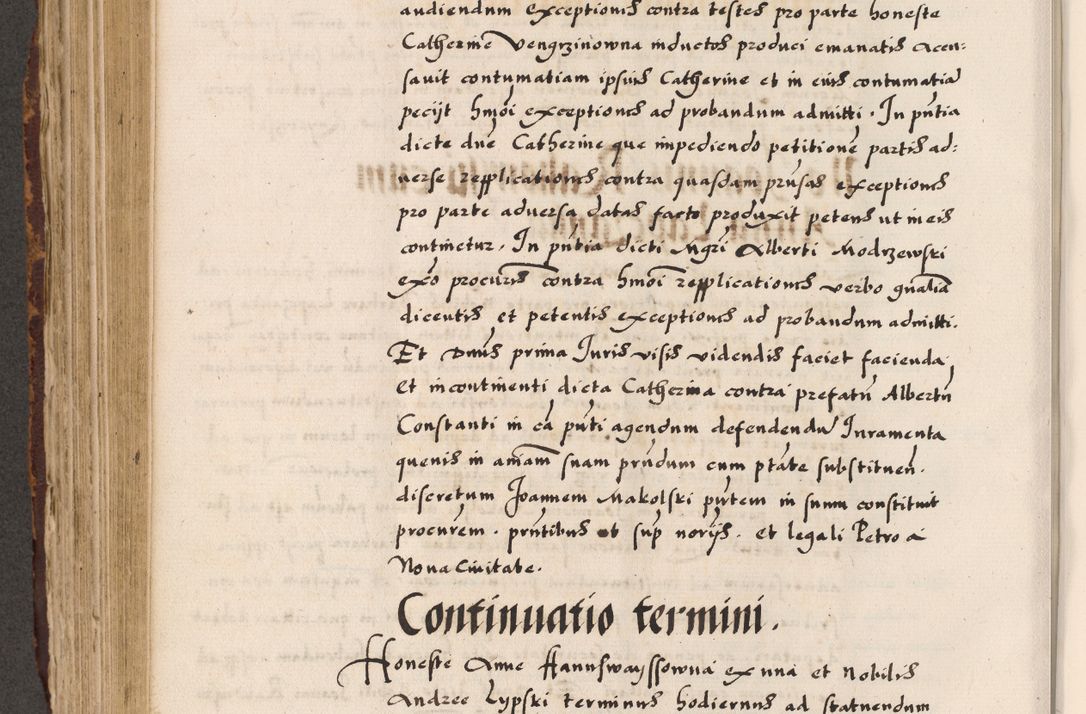 audiendum exceptionis contra testes pro parte honeste
Catherine Vengrzinowna inductos produci emanatis Accu:
sauit contumatiam ipsius Catherine et in eius contumatia
pecijt hmoi exceptiones ad probandum admitti. In pntia
dicte dne Catherine que impediendo petitione partis ad:
uerse repplicationes contra quasdam prnsas exceptiones
pro parte aduersa datas facto produxit petens ut in eis
continetur. In pntia dicti Mgri Alberti Modrzewski
exo procuris contra hmoi repplicationes verbo gnalia
dicentis et petentis exceptiones ad probandum admitti.
Et Dnus prima Iuris visis videndis faciet facienda
et incontinenti dicta Catherina contra prefatu Albertu
Constanti in ca pnti agendum defendendu Iuramenta
quenis in aniam suam prndum cum ptate substituen.
discretum Joannem Makolski pntem in suum constituit
procurem. prntibus ut sup norijs. et legali Petro a
Noua Ciuitate.
Continuatio termini.
Honeste Anne Hannswayssowna ex una et Nobilis
Andree Lypski terminus hodiernus ad statuendum